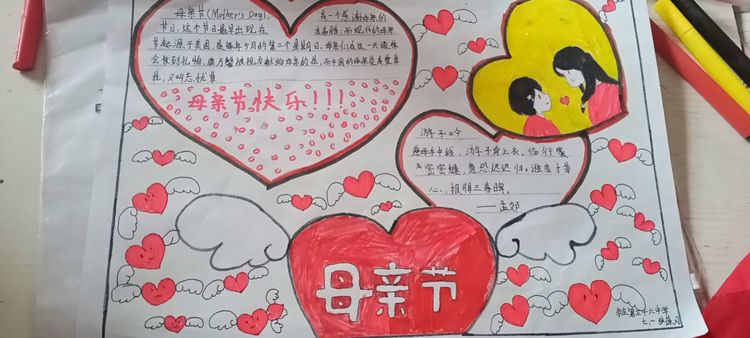 母亲节(Mother's Day), 是一个感谢母亲的
节日,这个节日最早出现在古希腊,而现代的母亲
节起源于美国,是每年5月的第二个星期日,母亲们在这一天通常
会收到礼物,康乃馨被视为献给母亲的花,而中国的母亲花是萱草
花,又叫忘忧草
母亲节快乐!!!
游子吟
慈母手中线,游子身上衣,临行密
密密缝,意恐迟迟归,谁言寸草
心,报得三春晖。
——孟郊
母亲节
第三十六中学
七、一